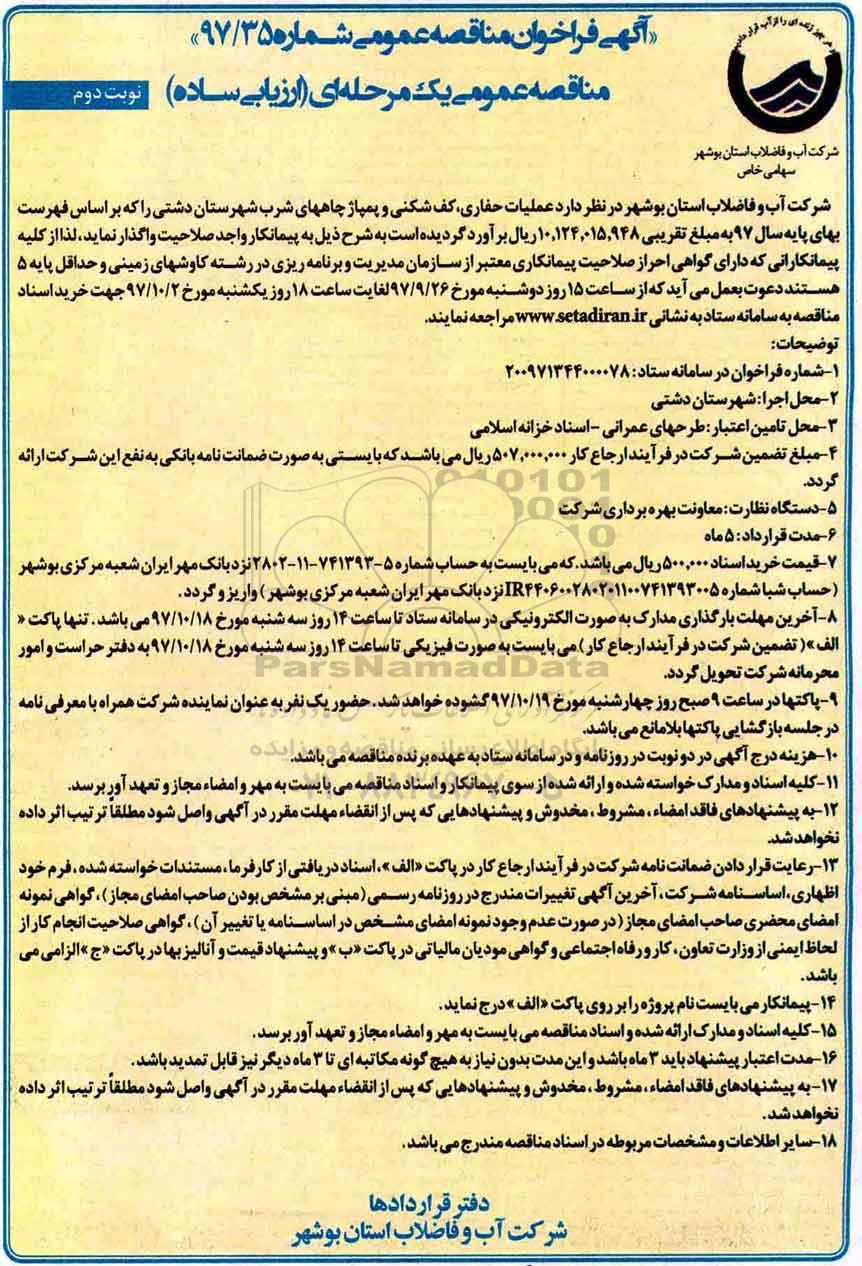 «آگهی فراخوان مناقصه عمومی شماره ۹۷/۳۵»
مناقصه عمومی یک مرحله‌ای (ارزیابی ساده)
نوبت دوم
شرکت آب و فاضلاب استان بوشهر
سهامی خاص
شرکت آب و فاضلاب استان بوشهر در نظر دارد عملیات حفاری، کف شکنی و پمپاژ چاههای شرب شهرستان دشتی را که بر اساس فهرست
بهای پایه سال ۹۷ به مبلغ تقریبی ۱۰,۱۲۴,۰۱۵,۹۴۸ ریال برآورد گردیده است به شرح ذیل به پیمانکار واجد صلاحیت واگذار نماید، لذا از کلیه
پیمانکارانی که دارای گواهی احراز صلاحیت پیمانکاری معتبر از سازمان مدیریت و برنامه ریزی در رشته کاوشهای زمینی و حداقل پایه ۵
هستند دعوت بعمل می آید که از ساعت ۱۵ روز دوشنبه مورخ ۹۷/۹/۲۶ لغایت ساعت ۱۸ روز یکشنبه مورخ ۹۷/۱۰/۲ جهت خرید اسناد
مناقصه به سامانه ستاد به نشانی www.setadiran.ir مراجعه نمایند.
توضیحات:
۱-شماره فراخوان در سامانه ستاد: ۲۰۰۹۷۱۳۴۴۰۰۰۰۷۸
۲-محل اجرا: شهرستان دشتی
۳-محل تامین اعتبار: طرحهای عمرانی -اسناد خزانه اسلامی
۴-مبلغ تضمین شرکت در فرآیند ارجاع کار ۵۰۷,۰۰۰,۰۰۰ ریال می باشد که بایستی به صورت ضمانت نامه بانکی به نفع این شرکت ارائه
گردد.
۵-دستگاه نظارت: معاونت بهره برداری شرکت
۶-مدت قرارداد: ۵ ماه
۷-قیمت خرید اسناد ۵۰۰,۰۰۰ ریال می باشد. که می بایست به حساب شماره ۵-۷۴۱۳۹۳-۱۱-۲۸۰۲ نزد بانک مهر ایران شعبه مرکزی بوشهر
(حساب شبا شماره IR۴۴۰۶۰۰۲۸۰۲۰۱۱۰۰۷۴۱۳۹۳۰۰۵ نزد بانک مهر ایران شعبه مرکزی بوشهر) واریز و گردد.
۸-آخرین مهلت بارگذاری مدارک به صورت الکترونیکی در سامانه ستاد تا ساعت ۱۴ روز سه شنبه مورخ ۹۷/۱۰/۱۸ می باشد. تنها پاکت «
الف» (تضمین شرکت در فرآیند ارجاع کار) می بایست به صورت فیزیکی تا ساعت ۱۴ روز سه شنبه مورخ ۹۷/۱۰/۱۸ به دفتر حراست و امور
محرمانه شرکت تحویل گردد.
۹-پاکتها در ساعت ۹ صبح روز چهارشنبه مورخ ۹۷/۱۰/۱۹ گشوده خواهد شد. حضور یک نفر به عنوان نماینده شرکت همراه با معرفی نامه
در جلسه بازگشایی پاکتها بلامانع می باشد.
۱۰-هزینه درج آگهی در دو نوبت در روزنامه و در سامانه ستاد به عهده برنده مناقصه می باشد.
۱۱-کلیه اسناد و مدارک خواسته شده و ارائه شده از سوی پیمانکار و اسناد مناقصه می بایست به مهر و امضاء مجاز و تعهد آور برسد.
۱۲-به پیشنهادهای فاقد امضاء، مشروط، مخدوش و پیشنهادهایی که پس از انقضاء مهلت مقرر در آگهی واصل شود مطلقاً ترتیب اثر داده
نخواهد شد.
۱۳-رعایت قرار دادن ضمانت نامه شرکت در فرآیند ارجاع کار در پاکت «الف»، اسناد دریافتی از کارفرما، مستندات خواسته شده، فرم خود
اظهاری، اساسنامه شرکت، آخرین آگهی تغییرات مندرج در روزنامه رسمی (مبنی بر مشخص بودن صاحب امضای مجاز)، گواهی نمونه
امضای محضری صاحب امضای مجاز (در صورت عدم وجود نمونه امضای مشخص در اساسنامه یا تغییر آن)، گواهی صلاحیت انجام کار از
لحاظ ایمنی از وزارت تعاون، کار و رفاه اجتماعی و گواهی مودیان مالیاتی در پاکت «ب» و پیشنهاد قیمت و آنالیز بها در پاکت «ج» الزامی می
باشد.
۱۴-پیمانکار می بایست نام پروژه را بر روی پاکت «الف» درج نماید.
۱۵-کلیه اسناد و مدارک ارائه شده و اسناد مناقصه می بایست به مهر و امضاء مجاز و تعهد آور برسد.
۱۶-مدت اعتبار پیشنهاد باید ۳ ماه باشد و این مدت بدون نیاز به هیچ گونه مکاتبه ای تا ۳ ماه دیگر نیز قابل تمدید باشد.
۱۷-به پیشنهادهای فاقد امضاء، مشروط، مخدوش و پیشنهادهایی که پس از انقضاء مهلت مقرر در آگهی واصل شود مطلقاً ترتیب اثر داده
نخواهد شد.
۱۸-سایر اطلاعات و مشخصات مربوطه در اسناد مناقصه مندرج می باشد.
دفتر قراردادها
شرکت آب و فاضلاب استان بوشهر
ParsNamadData